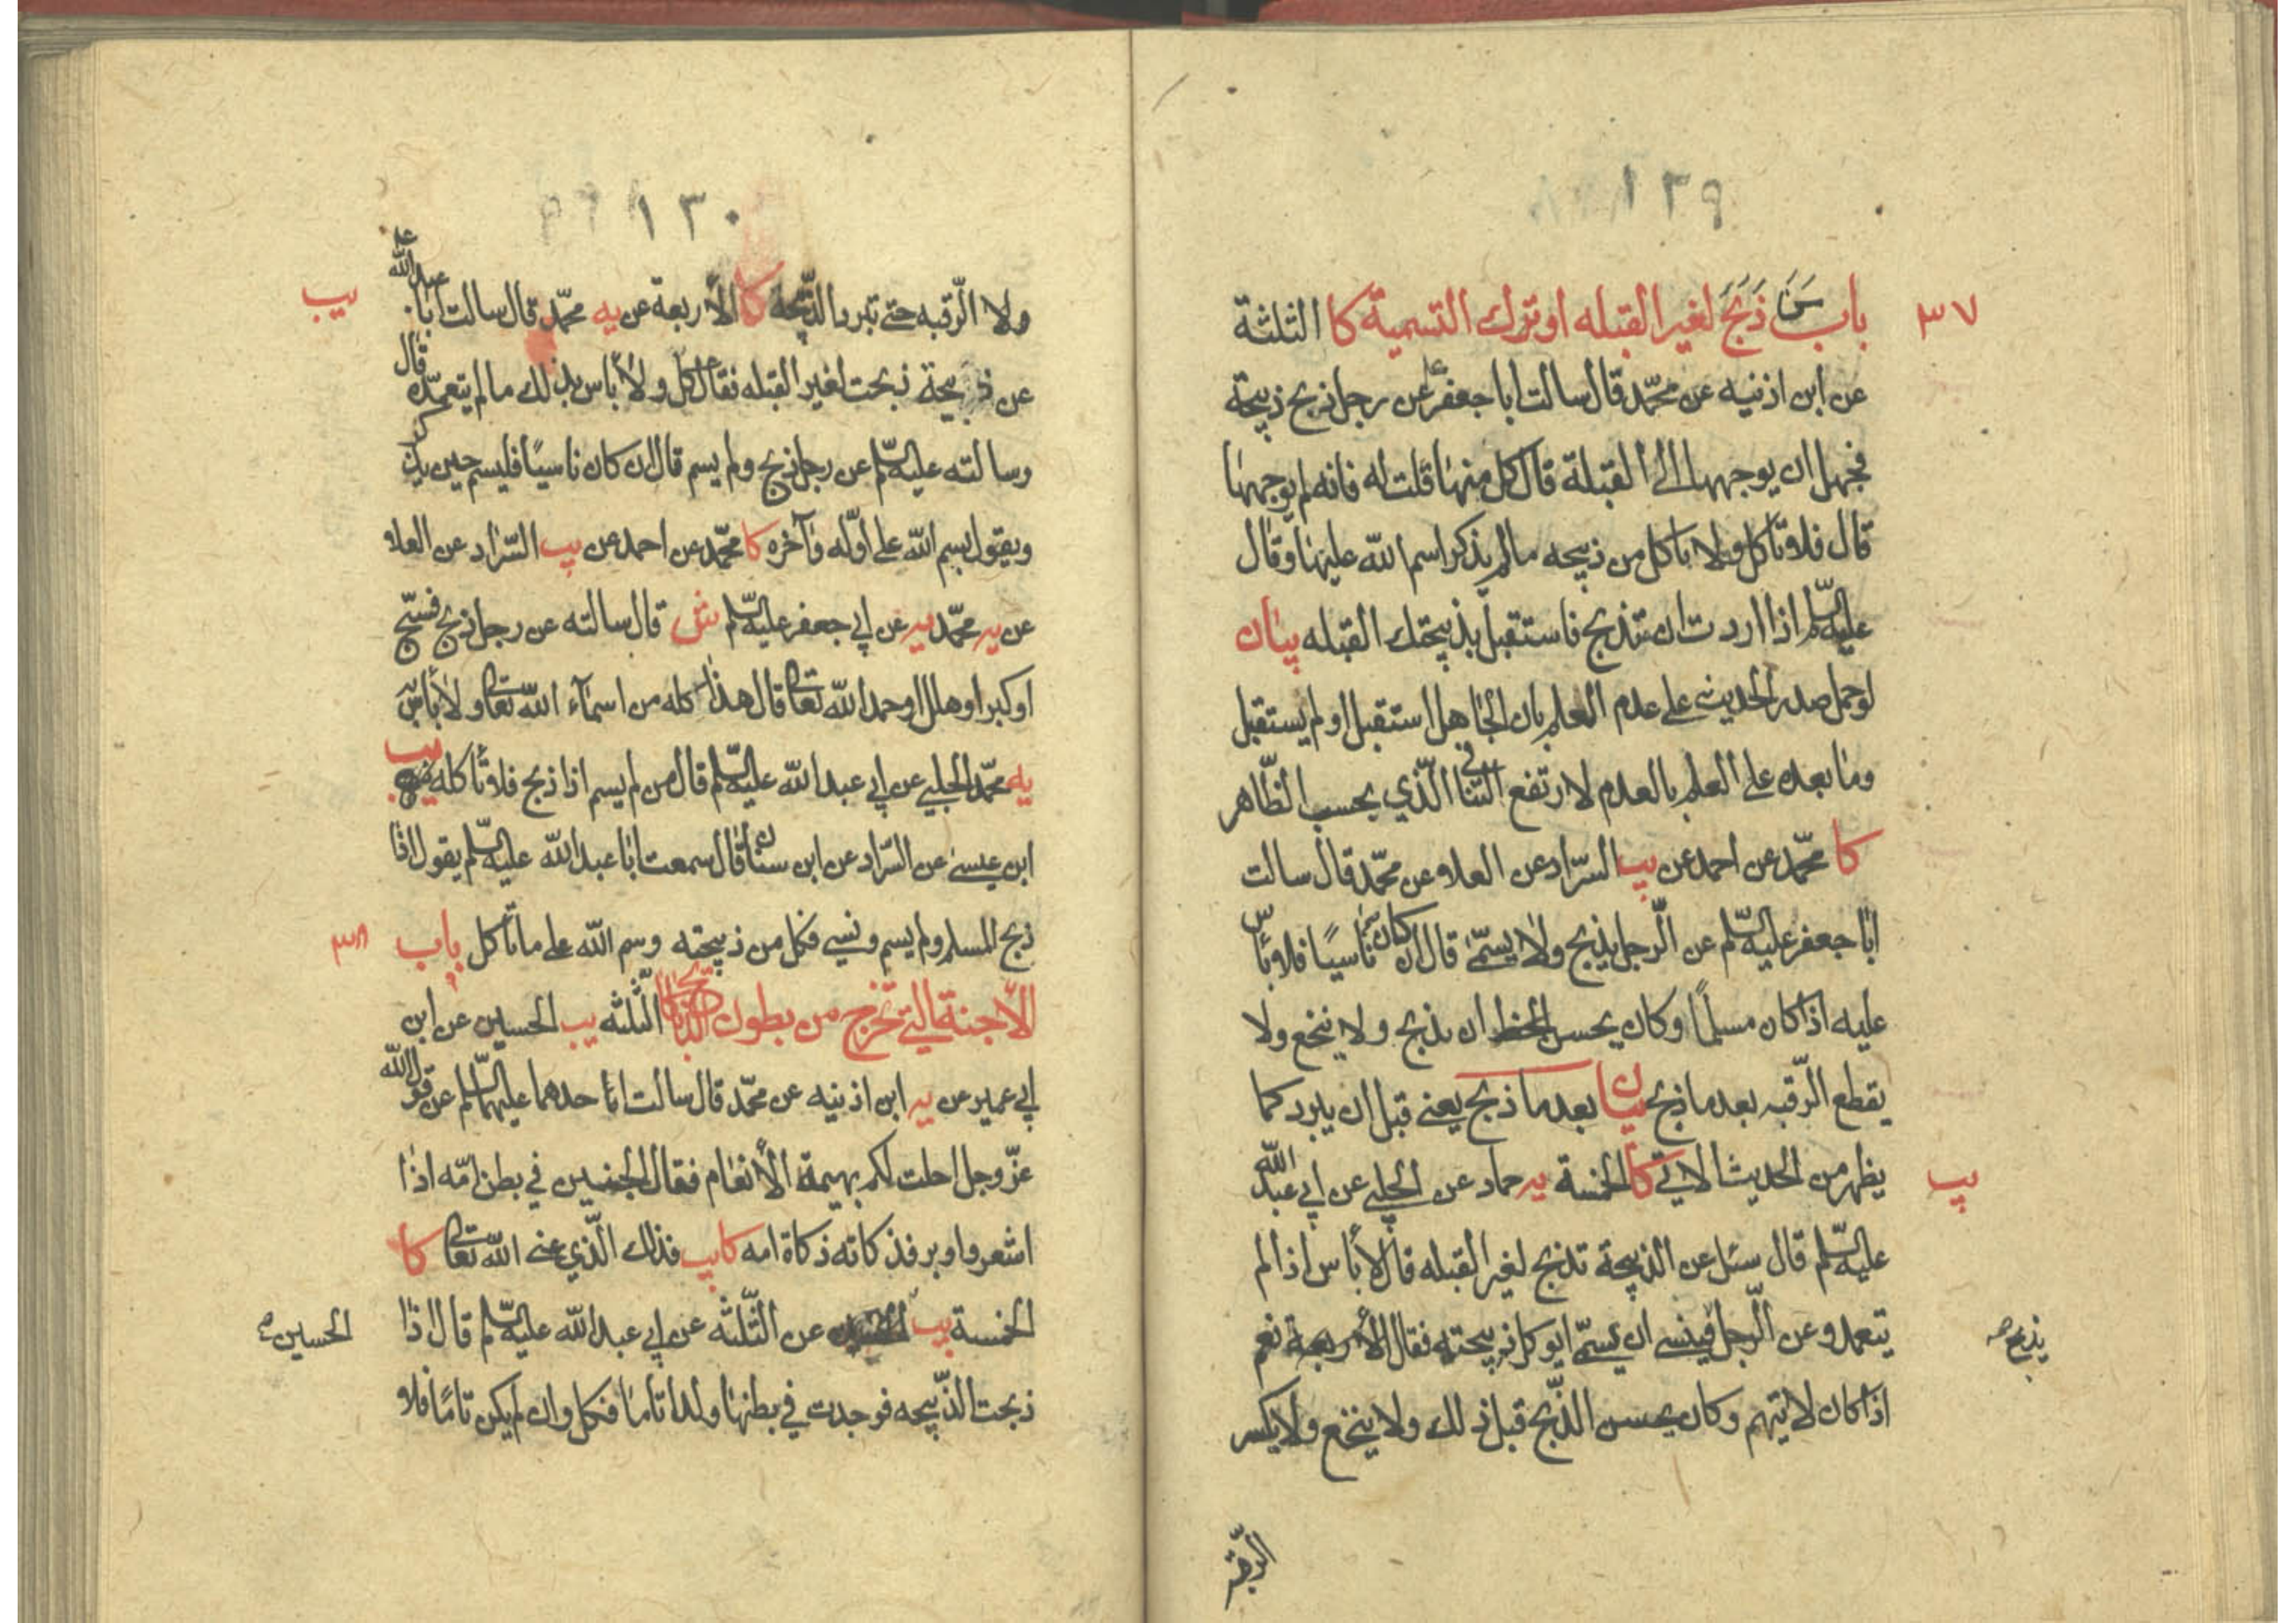 ١٢٩
٣٧
باب من ذبح لغير القبله او ترك التسمية كا الثلثة
عن ابن اذنيه عن محمّد قال سالت ابا جعفر ع عن رجل ذبح ذبيحة
فجهل ان يوجهها الى القبلة قال كل منها قلت له فانه لم يوجهها
قال فلا تاكل ولا تاكل من ذبيحه مالم يذكر اسم الله عليها وقال
عليه السّلم اذا اردت ان تذبح فاستقبل بذبيحتك القبله بيان
لو حمل صدر الحديث على عدم العلم بان الجاهل استقبل او لم يستقبل
وما بعده على العلم بالعدم لارتفع التنافي الّذي بحسب الظّاهر
كا محمّد عن احمد عن يب السّراد عن العلا عن محمّد قال سالت
ابا جعفر عليه السّلم عن الّرجل يذبح ولا يسمّى قال ان كان ناسيًا فلا باس
عليه اذا كان مسلمًا وكان يحسن ان يذبح ولا ينخع ولا
يقطع الّرقبه بعد ما ذبح بيان بعد ما ذبح يعني قبل ان يبرد كما
يظهر من الحديث الاتي كا الخمسة يه حماد عن الحلبي عن ابي عبد الله
يب
عليه السّلم قال سئل عن الذبيحة تذبح لغير القبله قال لا باس اذا لم
يتعمد وعن الّرجل فينسى ان يسمّي ايوكل ذبيحته فقال نعم
يذبح صح
اذا كان لا يتهم وكان يحسن الذّبح قبل ذلك ولا ينخع ولا يكسر
الّرقبه
١٣٠
ولا الّرقبه حتى تبرد الذّبيحة كا الأربعة عن يه محمّد قال سالت ابا عبد الله ع
يب
عن ذبيحة ذبحت لغير القبله فقال كل ولا باس بذلك مالم يتعمّده قال
وسالته عليه السّلم عن رجل ذبح ولم يسم قال ان كان ناسيًا فليسم حين يذكر
ويقول بسم الله على اوّله وآخره كا محمّد عن احمد عن يب السّراد عن العلا
عن يه محمّد عن ابي جعفر عليه السّلم ش قال سالته عن رجل ذبح فسبّح
او كبر او هلل او حمد الله تعالى قال هذا كله من اسمآء الله تعالى ولا باس به
يه محمّد الحلبي عن ابي عبد الله عليه السّلم قال من لم يسم اذا ذبح فلا تاكله يب
ابن عيسى عن السّراد عن ابن سنان قال سمعت ابا عبد الله عليه السّلم يقول اذا
ذبح المسلم ولم يسم ونسي فكل من ذبيحته وسم الله على ما تاكل باب
٣٨
الأجنة التي تخرج من بطون الذبائح كا الثّلثه يب الحسين عن ابن
ابي عمير عن يه ابن اذنيه عن محمّد قال سالت احدهما عليهما السّلم عن قول الله
عزّ وجل احلت لكم بهيمة الأنعام فقال الجنين في بطن امّه اذا
اشعر واوبر فذكاته ذكاة امه كا يب فذلك الّذي عنى الله تعالى كا
الخمسة يب عن الثّلثه عن ابي عبد الله عليه السّلم قال اذا
الحسين
ذبحت الذّبيحه فوجدت في بطنها ولدا تاما فكل وان لم يكن تامًا فلا